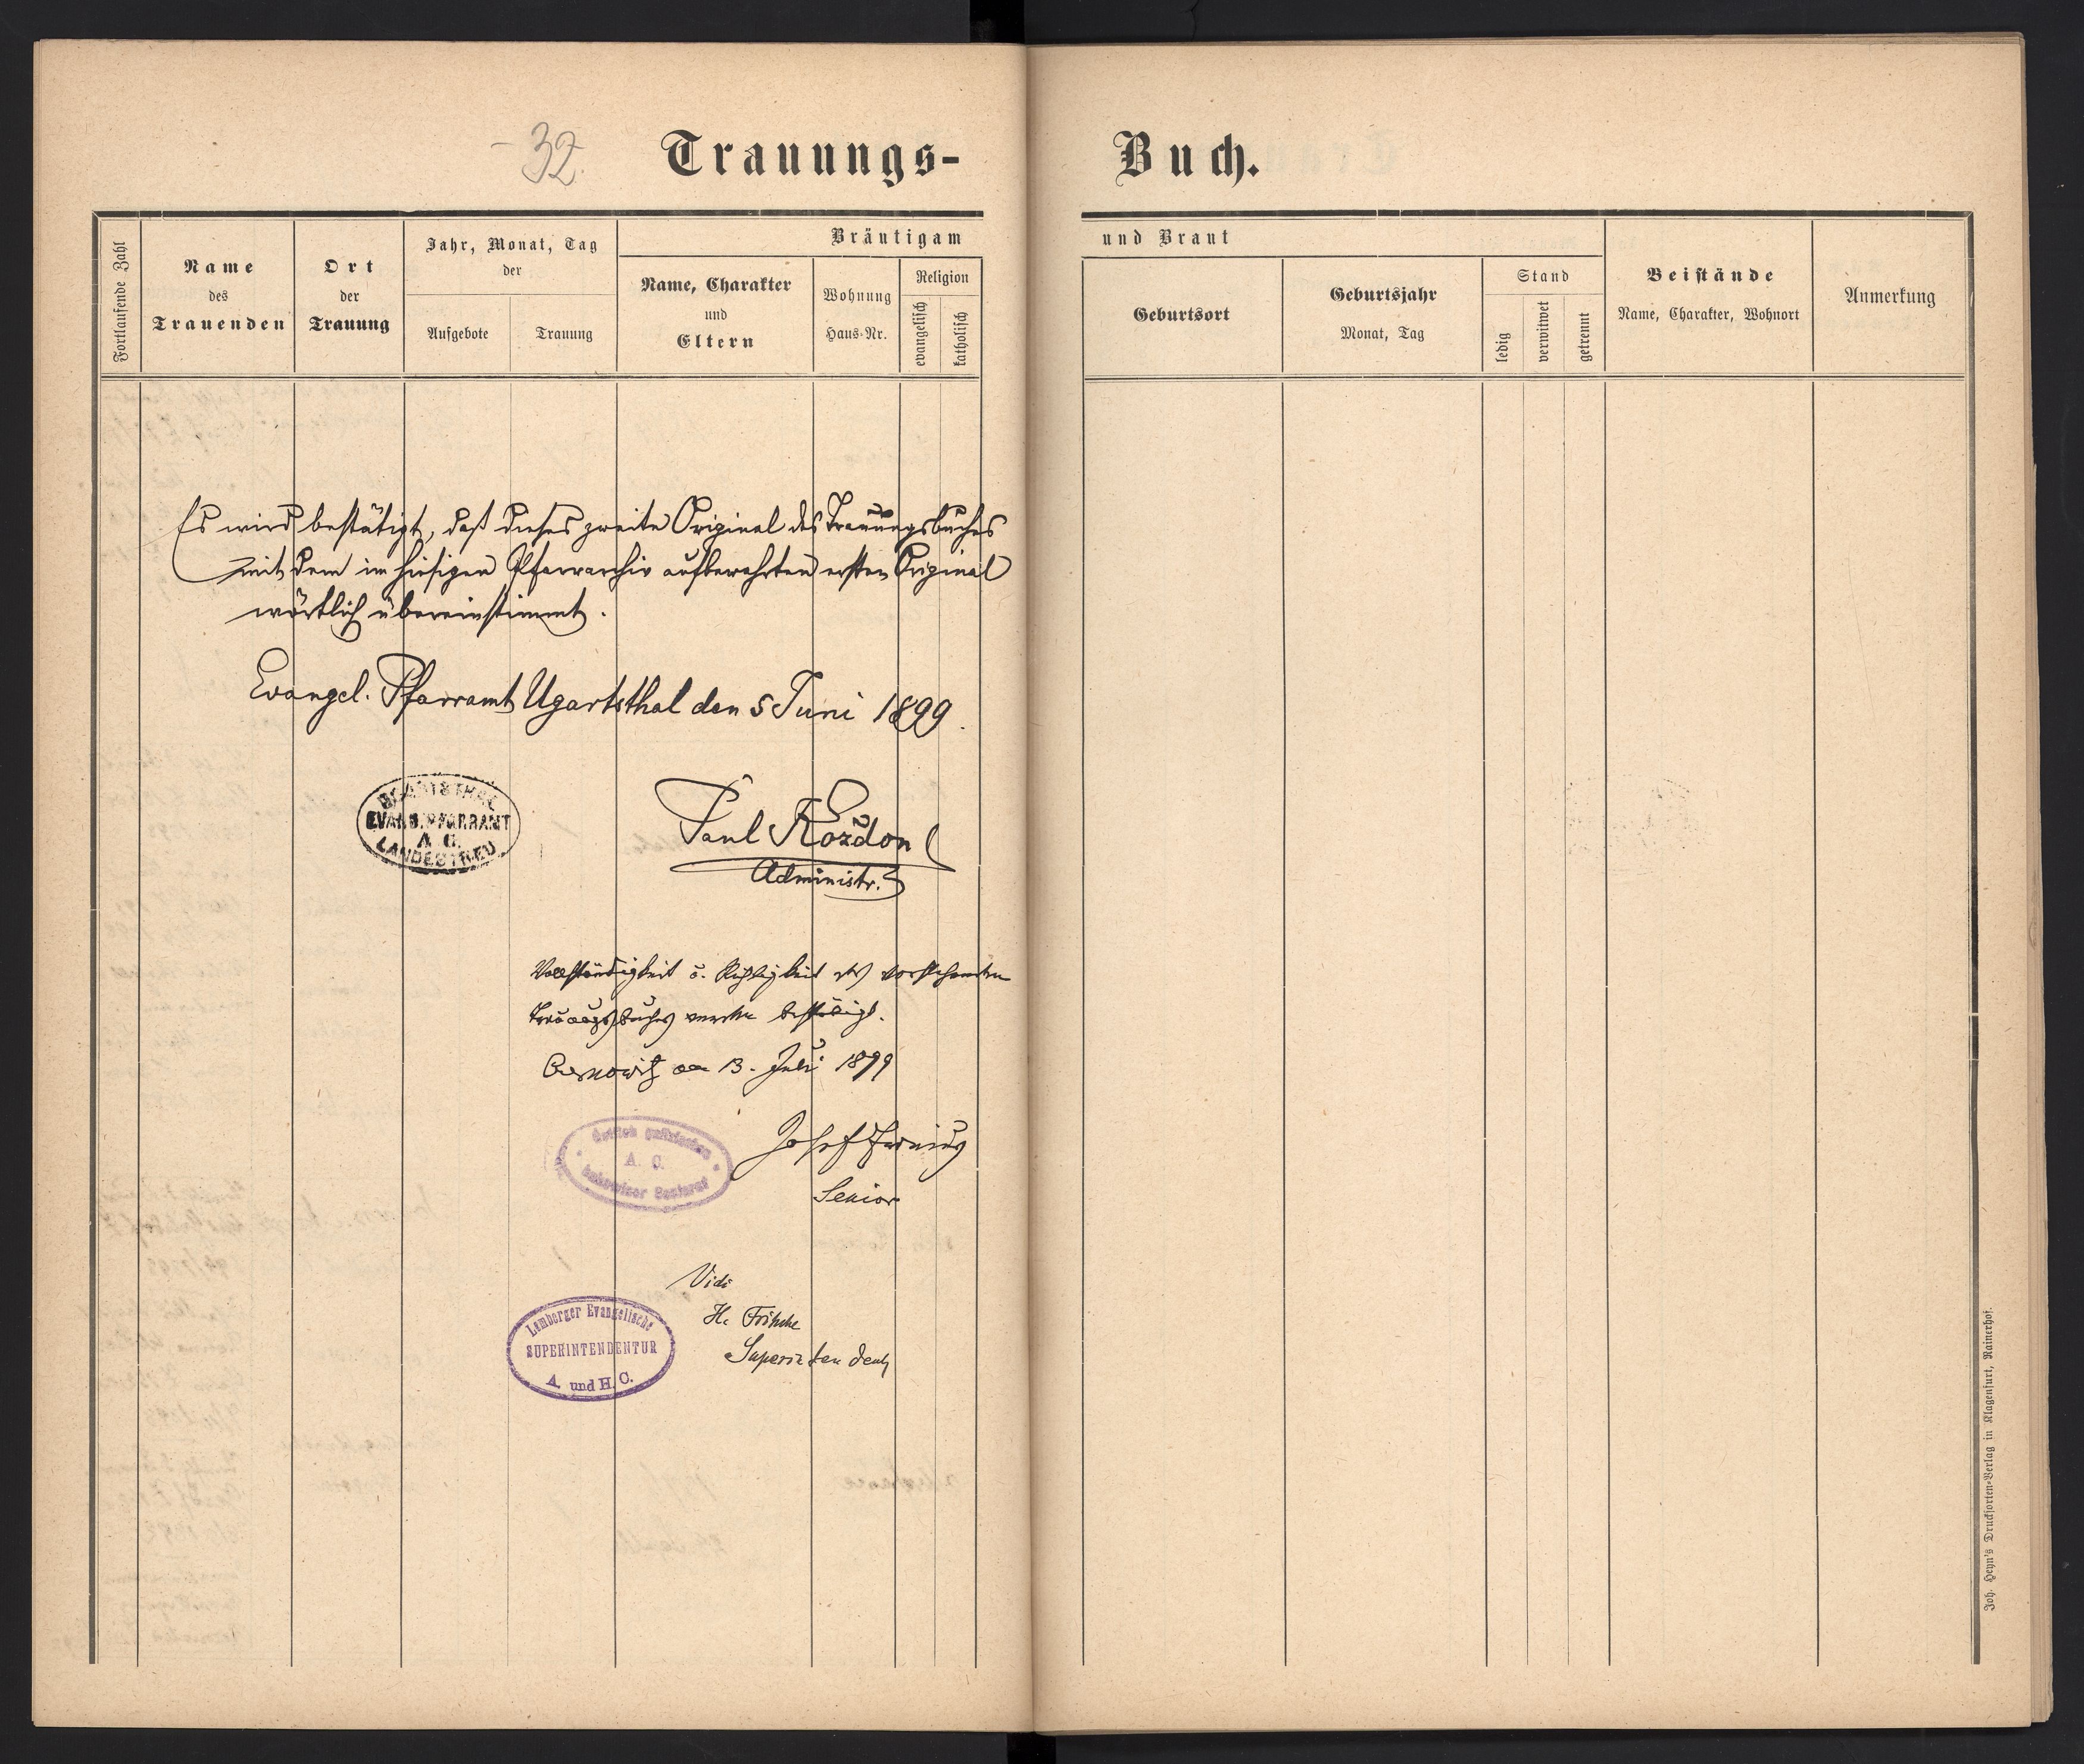 - 32.
Trauungs-Buch.
Fortlaufende Zahl
Name
des
Trauenden
Ort
der
Trauung
Jahr, Monat, Tag
der
Aufgebote
Trauung
Bräutigam und Braut
Name, Charakter
und
Eltern
Wohnung
Haus-Nr.
Religion
evangelisch
katholisch
Geburtsort
Geburtsjahr
Monat, Tag
Stand
ledig
verwitwet
getrennt
Beistände
Name, Charakter, Wohnort
Anmerkung
Es wird bestätigt, daß dieses zweite Original des Trauungsbuches
mit dem im hiesigen Pfarrarchiv aufbewahrten ersten Original
wörtlich übereinstimmt.
Evangel. Pfarramt Ugartsthal den 5 Juni 1899.
UGARTSTHAL
EVANG. PFARRAMT
A. C.
LANDESTREU
Paul Kozdon
Administr.
Vollständigkeit u. Richtigkeit des vorstehenden
Trauungsbuches bestätigt.
am 13. Juli 1899
A. C.
Josef
Senior
Vidi
H. Fritsche
Superintendent
Lemberger Evangelische
SUPERINTENDENTUR
A. und H. C.
Joh. Heyn's Drucksorten-Verlag in Klagenfurt, Rainerhof.